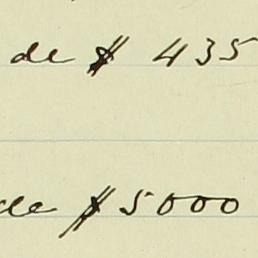 de $ 435
de $ 5000